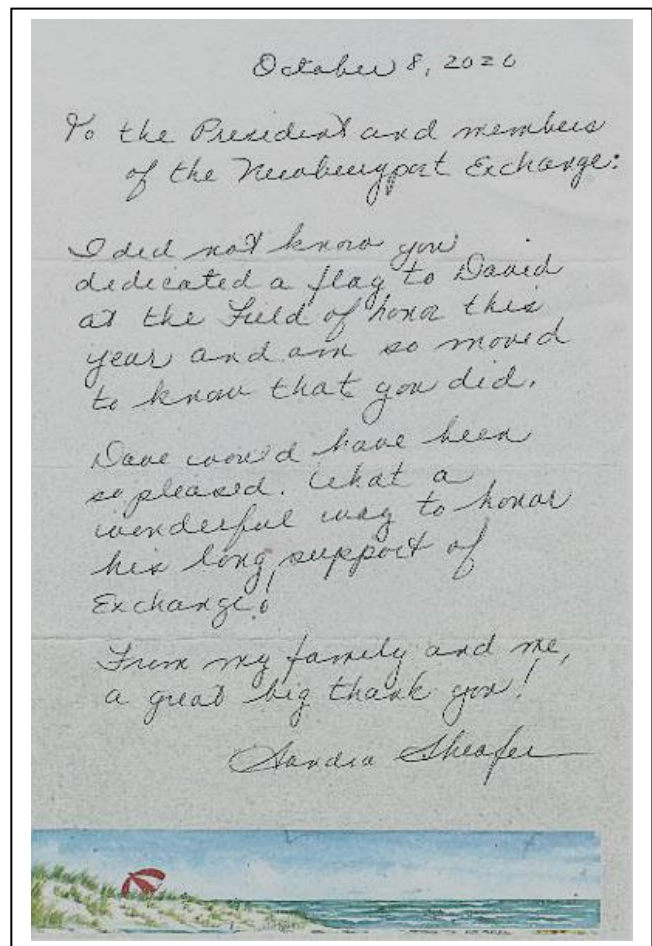 October 8, 2020
To the President and members
of the Newburyport Exchange:
I did not know you
dedicated a flag to David
at the Field of honor this
year and am so moved
to know that you did.
Dave would have been
so pleased. What a
wonderful way to honor
his long support of
Exchange!
From my family and me,
a great big thank you!
Sandra Sheafer